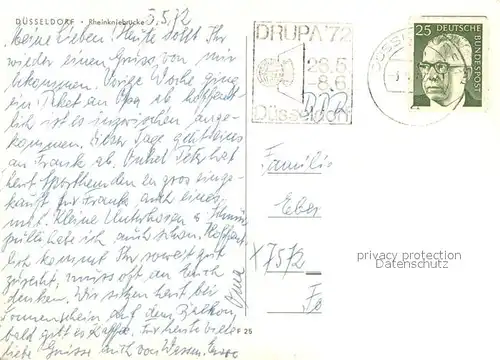 DÜSSELDORF · Rheinkniebrücke
3.5.72
Meine Lieben! Heute sollt Ihr
wieder einen Gruss von mir
bekommen. Vorige Woche ging
ein Paket an Opa ab hoffent-
lich ist es inzwischen ange-
kommen. Dieser Tage geht eins
an Frank ab. Onkel Peter hat
Sporthemden zu gros einge-
kauft für Frank auch eines
mit. Kleine Unterhosen u.
habe ich auch schon. Hoffent-
lich kommt Ihr soweit gut
zurecht, muss oft an Euch
denken. Wir sitzen hier bei
Sonnenschein auf dem Balkon,
bald gibt es Kaffee. Für heute viele
liebe Grüsse auch von
Oma
F 25
DRUPA '72
26.5
8.6
Düsseldorf
DDR
25
DEUTSCHE
BUNDESPOST
Familie
Eber
X7572
privacy protection
Datenschutz